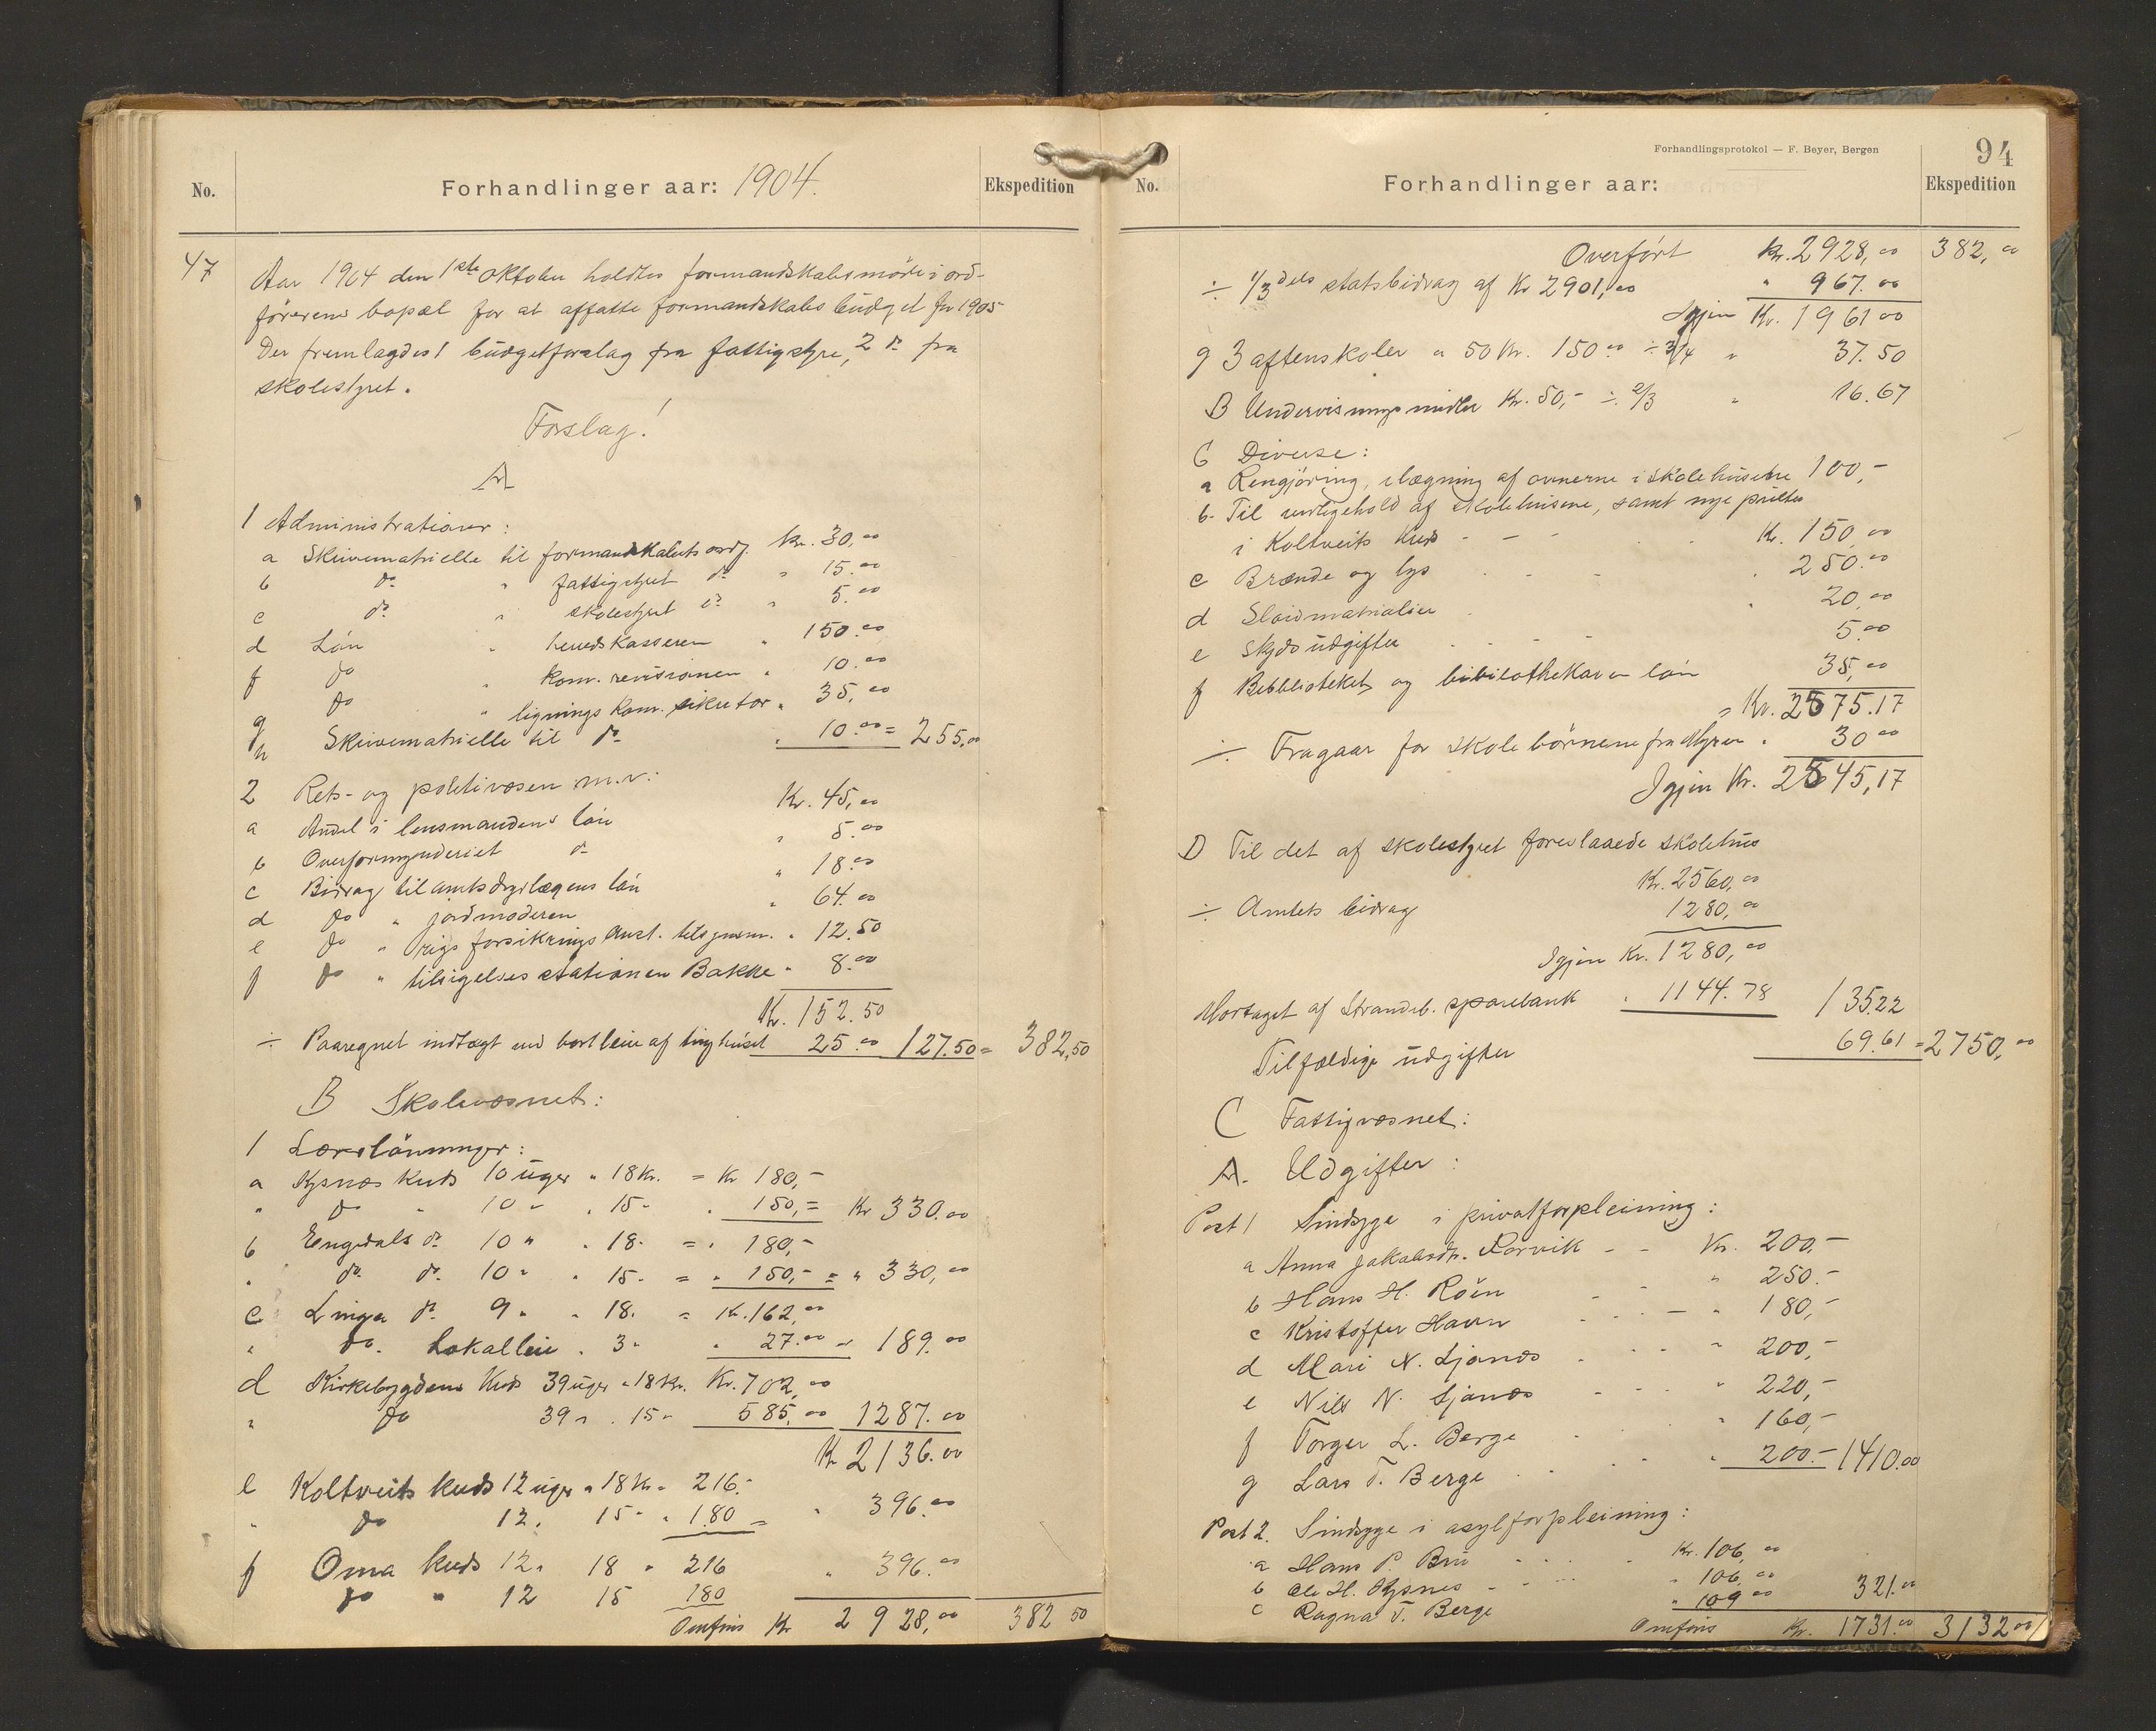 No.
Forhandlinger aar: 1904.
Ekspedition
47
Aar 1904 den 1ste oktober holdtes formandskabsmöde i ord-
førerens bopæl for at affatte formandskabs budget for 1905
Der fremlagdes 1 budgetforslag fra fattigstyre, 2 do fra
skolestyret.
Forslag!
A
1 Administrationer:
a Skrivematrielle til formandskabets ordf. Kr. 30,00
b do " fattigstyret do " 15.00
c do " skolestyret do " 5.00
d Lön " herredskasseren " 150.00
f do " kom. revisionen " 10.00
g do " lignings kom. sekretær " 35,00
h Skrivematrielle til do " 10.00 = 255,00
2 Rets- og politivæsen m.v.:
a Andel i lensmandens lön Kr. 45,00
b Overformynderiet do " 5.00
c Bidrag til amtsdyrlægens lön " 18.00
d do " jordmoderen " 64.00
e do " rigsforsikrings Anst. " 12.50
f do " tilsigelses stationen Bakke " 8.00
Kr. 152.50
÷ Paaregnet indtægt ved bortleie af tinghuset 25.00 127.50 = 382,50
B Skolevæsnet:
1 Lærerlönninger:
a Kysnæs kreds 10 uger " 18 Kr. = Kr 180,-
" do " 10 " " 15 " " 150,= Kr 330.00
b Engedals do 10 " " 18. = " 180,-
" do do 10 " " 15 " = " 150,- = " 330,00
c Linga do 9 " " 18. = Kr. 162,00
" do. Lokalleie " 3 " " 27.00 = 189.00
d Kirkebygdens Kreds 39 uger " 18 Kr. Kr. 702,00
" do 39 " " 15 " 585,00 1287.00
Kr 2136.00
e Koltveits kreds 12 uger " 18 Kr. " 216.-
" do 12. 15 " " 180 = " 396.00
f Oma kreds 12 " 18 " 216 " 396.00
do " 12 15 180
Omföres Kr 2928,00 382 50
Forhandlingsprotokol — F. Beyer, Bergen
94
No.
Forhandlinger aar:
Ekspedition
Overført Kr. 2928,00 382,00
÷ 1/3dels statsbidrag af Kr 2901,00 " 967.00
Igjen Kr. 1961 00
g 3 aftenskoler a 50 Kr. 150.00 ÷ 3/4 " 37.50
B Undervisningsmidler Kr. 50,- ÷ 2/3 " 16.67
C Diverse:
a Rengjöring, ilægning af ovnerne i skolehusene 100,-
b. Til vedligehold af skolehusene, samt nye pulter
i Koltveits Kreds - - - Kr. 150,00
c Brænde og lys - - - " 250.00
d Slöidmatrialier " 20,00
e Skydsudgifter - - - 5.00
f Bibliotekets og bibliothekaren lön 35,00
= Kr. 2575.17
÷ Fragaar for skolebörnene fra Myren " 30 00
Igjen Kr. 2545,17
D Til det af skolestyret foreslaaede skolehus
Kr. 2560,00
÷ Amtets bidrag 1280,00
Igjen Kr. 1280,00
Mortaget af Strandeb. sparebank " 1144.78 135.22
Tilfældige udgifter 69.61 = 2750,00
C Fattigvæsnet:
A. Udgifter:
Post 1 Sindsyge i privatforpleining:
a Anna Jakobsdtr. Porvik - - Kr. 200.-
b Hans H. Röen - - " 250.-
c Kristoffer Havn - - - " 180,-
d Mari N. Ljones - - - " 200,-
e Nils N. Ljones - - - " 220,-
f Torger L. Berge " 160,-
g Lars T. Berge - - - " 200.- 1410.00
Post 2. Sindsyge i asylforpleining:
a Hans P. Bru - - - Kr. 106,00
b Ole H. Kysnes - - - " 106,00
c Ragna T. Berge " 109 00 321.00
Omföres Kr. 1731.00 3132 00